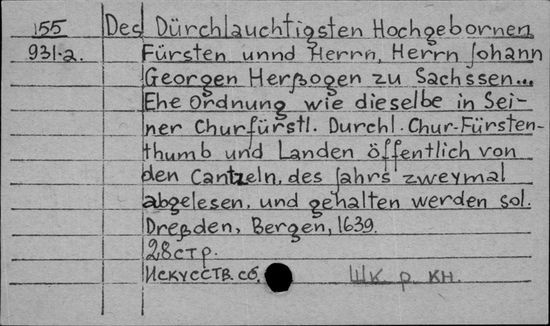 155 Des Dürchlauchtigsten Hochgebornen
931-2. Fürsten unnd Herrn, Herrn Johann
Georgen Herßogen zu Sachssen...
Ehe Ordnung wie dieselbe in Sei-
ner Churfürstl. Durchl. Chur-Fürsten-
thumb und Landen öffentlich von
den Cantzeln, des Jahrs zweymal
abgelesen, und gehalten werden sol.
Dreßden, Bergen, 1639.
28 стр.
Искусств. сб. Шк. р. кн.